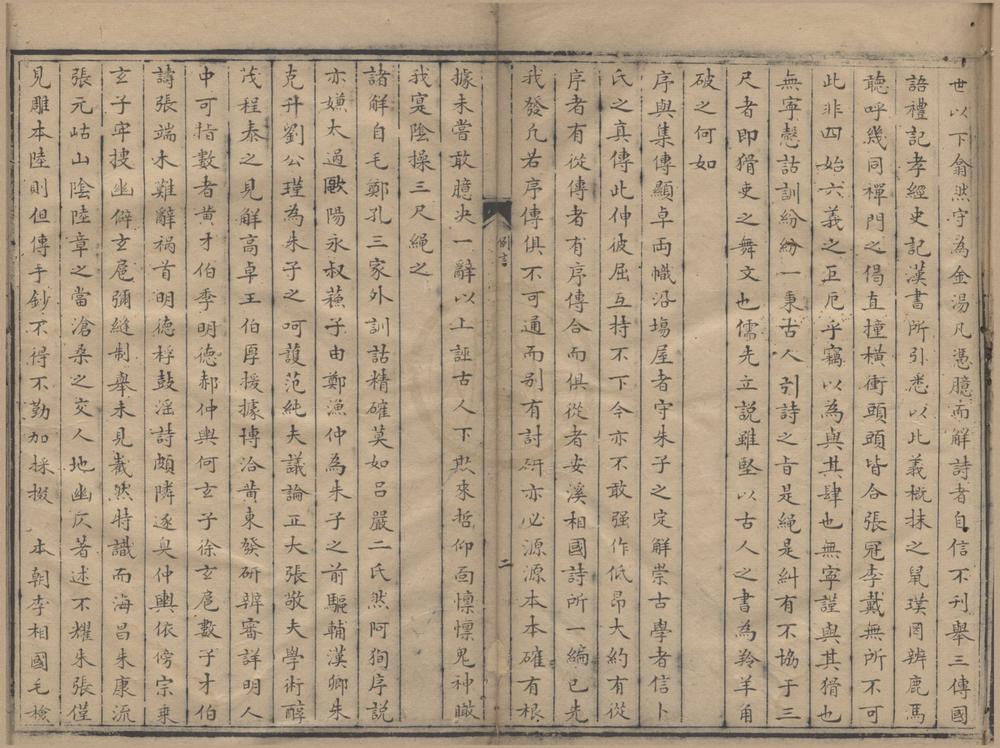 世以下翕然守為金湯凡憑臆而解詩者自信不刊舉三傳國
語禮記孝經史記漢書所引悉以此義概抹之鼠璞罔辨鹿馬
聽呼幾同禪門之偈直撞橫衝頭頭皆合張冠李戴無所不可
此非四始六義之正厄乎竊以為與其肆也無寧謹與其猾也
無寧愨詁訓紛紛一秉古人引詩之旨是繩是糾有不協于三
尺者即猾吏之舞文也儒先立説雖堅以古人之書為羚羊角
破之何如
序與集傳顯卓両幟沿塲屋者守朱子之定解崇古學者信卜
氏之真傳此伸彼屈互持不下今亦不敢强作低昂大約有從
序者有從傳者有序傳合而俱從者安溪相國詩所一編已先
我發凢若序傳俱不可通而别有討研亦必源源本本確有根
例言
二
據未嘗敢臆决一辭以上誣古人下欺來哲仰面懍懍鬼神瞰
我寔陰操三尺繩之
諸解自毛鄭孔三家外訓詁精確莫如吕嚴二氏然阿狥序説
亦嫌太過歐陽永叔蘓子由鄭漁仲為朱子之前驅輔漢卿朱
克升劉公瑾為朱子之呵護范純夫議論正大張敬夫學術醇
茂程泰之見解高卓王伯厚援據博洽黄東發研辨審詳明人
中可指數者黄才伯季明德郝仲輿何玄子徐玄扈數子才伯
譸張端未難辭禍首明德桴鼓淫詩頗隣逐臭仲輿依傍宗乗
玄子牢㨗幽僻玄扈彌縫制舉未見截然特識而海昌朱康流
張元岵山陰陸章之當滄桑之交人地幽仄著述不耀朱張僅
見雕本陸則但傳手鈔不得不勤加採掇　本朝李相國毛檢